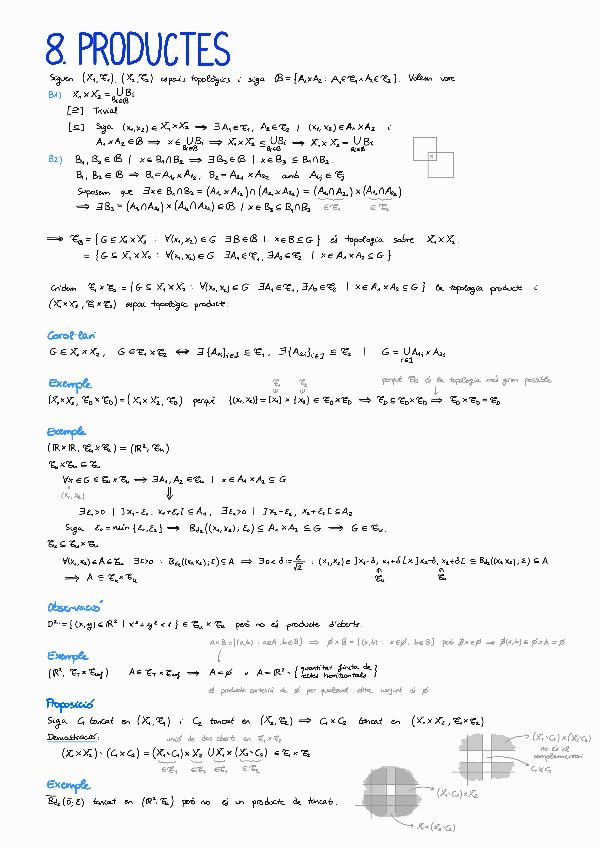 8. PRODUCTES
Siguen (X₁,τ₁), (X₂,τ₂) espais topològics i siga ℬ={A₁×A₂ : A₁∈τ₁ ∧ A₂∈τ₂}. Volem vore
B1) X₁×X₂ = ⋃Bᵢ
Bᵢ∈ℬ
[⊇] Trivial
[⊆] Siga (x₁,x₂)∈X₁×X₂ ⟹ ∃A₁∈τ₁, A₂∈τ₂ | (x₁,x₂)∈A₁×A₂ i
A₁×A₂∈ℬ ⟹ x∈⋃Bᵢ ⟹ X₁×X₂⊆⋃Bᵢ ⟹ X₁×X₂=⋃Bᵢ
B2) B₁,B₂∈ℬ | x∈B₁∩B₂ ⟹ ∃B₃∈ℬ | x∈B₃⊆B₁∩B₂.
B₁,B₂∈ℬ ⟹ B₁=A₁₁×A₁₂, B₂=A₂₁×A₂₂ amb Aᵢⱼ∈τⱼ
Suposem que ∃x∈B₁∩B₂=(A₁₁×A₁₂)∩(A₂₁×A₂₂)=(A₁₁∩A₂₁)×(A₁₂∩A₂₂)
⟹ ∃B₃=(A₁₁∩A₂₁)×(A₁₂∩A₂₂)∈ℬ | x∈B₃⊆B₁∩B₂ ∈τ₁ ∈τ₂
⟹ τ_ℬ={G⊆X₁×X₂ : ∀(x₁,x₂)∈G ∃B∈ℬ | x∈B⊆G} és topologia sobre X₁×X₂.
={G⊆X₁×X₂ : ∀(x₁,x₂)∈G ∃A₁∈τ₁, ∃A₂∈τ₂ | x∈A₁×A₂⊆G}
Cridem τ₁×τ₂={G⊆X₁×X₂ : ∀(x₁,x₂)∈G ∃A₁∈τ₁, ∃A₂∈τ₂ | x∈A₁×A₂⊆G} la topologia producte i
(X₁×X₂, τ₁×τ₂) espai topològic producte.
Corol·lari
G⊆X₁×X₂, G∈τ₁×τ₂ ⟺ ∃{A₁ᵢ}ᵢ∈I⊆τ₁, ∃{A₂ᵢ}ᵢ∈I⊆τ₂ | G=⋃A₁ᵢ×A₂ᵢ
i∈I
Exemple
τ₁ τ₂ perquè τ_D és la topologia més gran possible
(X₁×X₂, τ_D×τ_D)=(X₁×X₂, τ_D) perquè {(x₁,x₂)}={x₁}×{x₂}∈τ_D×τ_D ⟹ τ_D⊆τ_D×τ_D ⟹ τ_D×τ_D=τ_D
Exemple
(ℝ×ℝ, τ_u×τ_u)=(ℝ², τ_u)
τ_u×τ_u⊆τ_u
∀x∈G∈τ_u×τ_u ⟹ ∃A₁,A₂∈τ_u | x∈A₁×A₂⊆G
(x₁,x₂) ⇓
∃ε₁>0 | ]x₁-ε₁, x₁+ε₁[⊆A₁, ∃ε₂>0 | ]x₂-ε₂, x₂+ε₂[⊆A₂
Siga ε₀=mín{ε₁,ε₂} ⟹ B_d₂((x₁,x₂);ε)⊆A₁×A₂⊆G ⟹ G∈τ_u.
τ_u⊆τ_u×τ_u
∀(x₁,x₂)∈A∈τ_u ∃ε>0 : B_d₂((x₁,x₂);ε)⊆A ⟹ ∃0<δ:=ε/√2 : (x₁,x₂)∈]x₁-δ, x₁+δ[×]x₂-δ, x₂+δ[⊆B_d₂((x₁,x₂);ε)⊆A
⟹ A∈τ_u×τ_u τ_u τ_u
Observació
D²:={(x,y)∈ℝ² | x²+y²<1}∈τ_u×τ_u però no és producte d'oberts.
A×B={(a,b) : a∈A, b∈B} ⟹ ∅×B={(x,b) : x∈∅, b∈B} però ∄x∈∅ ⟹ ∄(a,b)∈∅×A=∅
Exemple
(ℝ², τ_T×τ_cof) A∈τ_T×τ_cof ⟹ A=∅ ∨ A=ℝ²-{quantitat finita de rectes horitzontals}
el producte cartesià de ∅ per qualsevol altre conjunt és ∅
Proposició
Siga C₁ tancat en (X₁,τ₁) i C₂ tancat en (X₂,τ₂) ⟹ C₁×C₂ tancat en (X₁×X₂, τ₁×τ₂)
Demostració: unió de dos oberts en τ₁×τ₂
(X₁×X₂)-(C₁×C₂)=(X₁-C₁)×X₂⋃X₁×(X₂-C₂)∈τ₁×τ₂
∈τ₁ ∈τ₂ ∈τ₁ ∈τ₂
(X₁-C₁)×(X₂-C₂)
no és el
complementari
C₁×C₂
Exemple
B_d₂(0,ε) tancat en (ℝ², τ_u) però no és un producte de tancats.
(X₁-C₁)×X₂
X₁×(X₂-C₂)